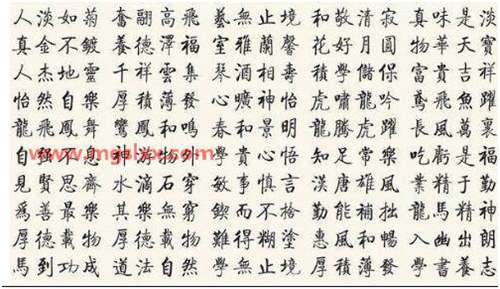 人淡如菊 奮翮高飛 藝無止境 和敬清寂 真味是淡
真金不鍍 養德澤福 室雅蘭馨 花好月圓 物華天寶
人杰地靈 千祥雲集 琴 相壽 學儲保 富貴吉祥
怡然自樂 厚積薄發 曠神怡 虎嘯龍吟 鳶飛魚躍
龍飛鳳舞 鸞鳳和鳴 春和景明 龍騰虎躍 長風萬裏
自強不息 神 物外 學貴心悟 知足常樂 吃虧是福
見賢思齊 水滴石穿 敏事慎言 漢唐雄風 業精于勤
爲善最樂 其樂無窮 鍥而不捨 勤能補拙 龍馬精神
厚德載物 厚德載物 難得糊塗 惠風和暢 入幽出朗
馬到功成 道法自然 學無止境 厚積薄發 學書養志
www.mgslxx.com